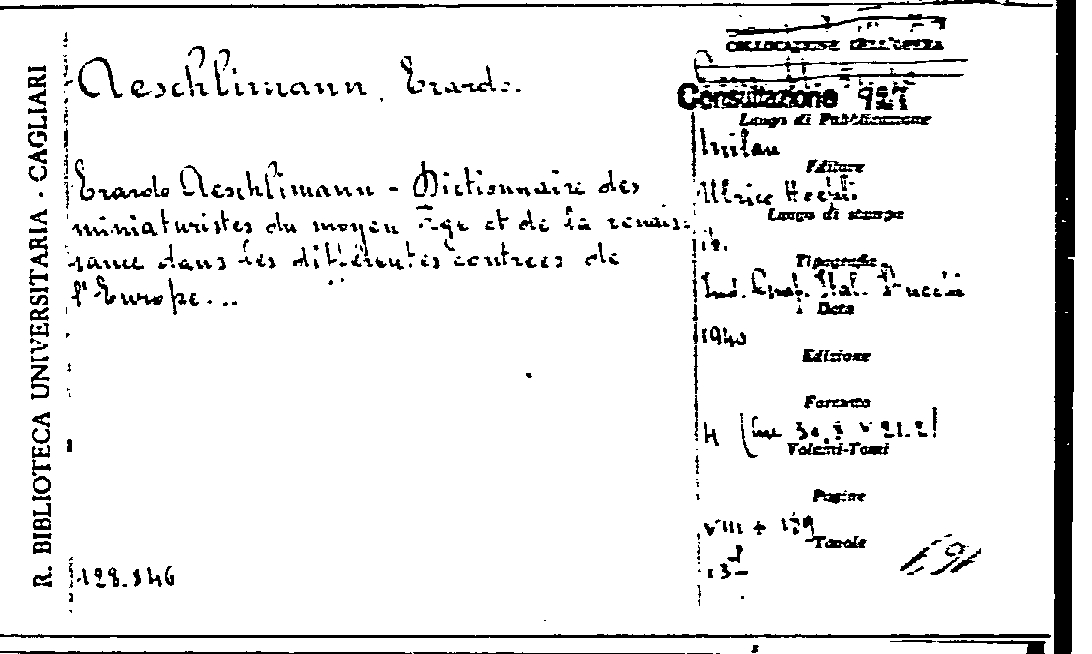 R. BIBLIOTECA UNIVERSITARIA - CAGLIARI
Aeschlimann, Erardo.
Erardo Aeschlimann - Dictionnaire des
miniaturistes du moyen âge et de la renais-
sance dans les différentes contrées de
l'Europe...
128.846
COLLOCAZIONE DELL'OPERA
Consultazione 927
Luogo di Pubblicazione
Milan
Editore
Ulrico Hoepli
Luogo di stampa
id.
Tipografia
Ind. Graf. Ital. Stucchi
Data
1940
Edizione
Formato
4 (cm 30,5 x 21.2)
Volumi-Tomi
Pagine
VIII + 139
Tavole